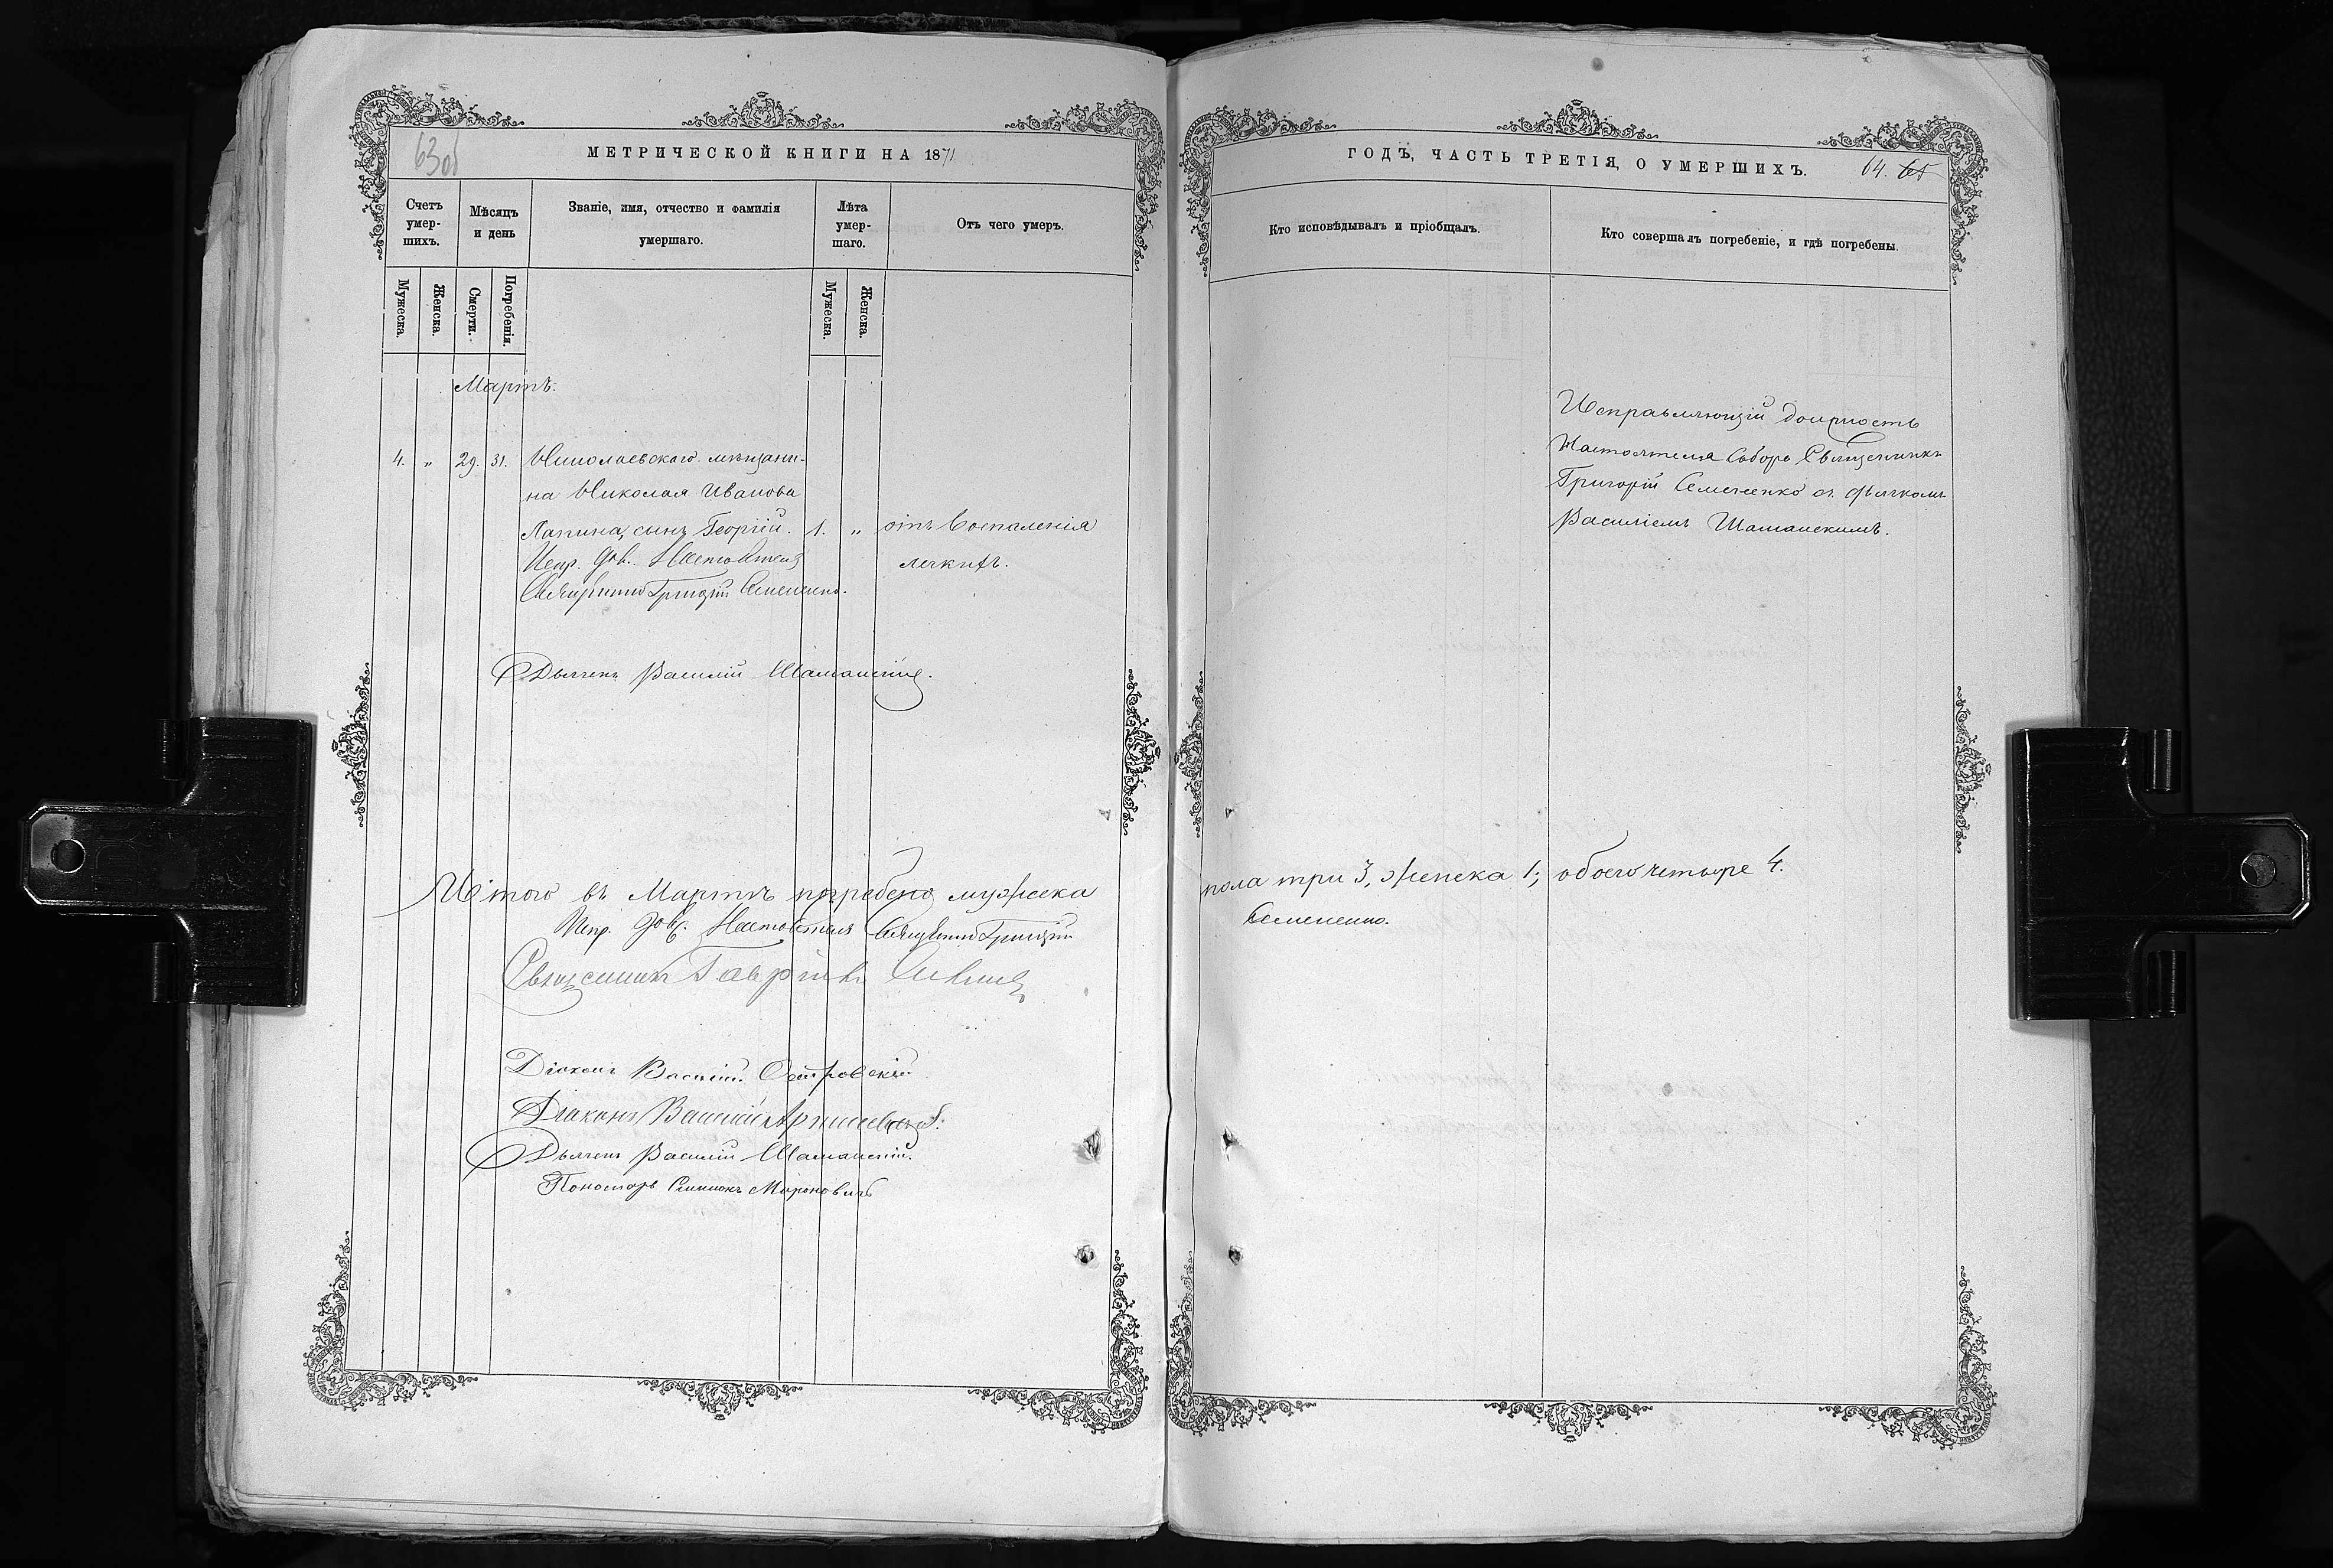 63об
МЕТРИЧЕСКОЙ КНИГИ НА 1871
Счетъ умер-шихъ.
Мѣсяцъ и день
Званіе, имя, отчество и фамилія умершаго.
Лѣта умер-шаго.
Отъ чего умеръ.
Мужеска.
Женска.
Смерти.
Погребенія.
Мужеска.
Женска.
Мартъ.
4. „ 29. 31. Николаевскаго мѣщани-
на Николая Иванова
Лапина, сынъ Георгій. 1. „ отъ воспаленія
легкихъ.
Испр. дол. Настоятеля
Священникъ Григорій Семененко.
Дьячекъ Василій Шаманскій.
Итого въ Мартѣ погребено мужеска
Испр. дол. Настоятеля Священникъ Григорій
Священникъ Гавріилъ
Діаконъ Василій Островскій
Діаконъ Василій
Дьячекъ Василій Шаманскій.
Пономарь Симеонъ Мироновичъ
ГОДЪ, ЧАСТЬ ТРЕТІЯ, О УМЕРШИХЪ.
64. 65
Кто исповѣдывалъ и пріобщалъ.
Кто совершалъ погребеніе, и гдѣ погребены.
Исправляющій должность
Настоятеля Собора Священникъ
Григорій Семененко съ дьячкомъ
Василіемъ Шаманскимъ.
пола три 3, женска 1; обоего четыре 4.
Семененко.